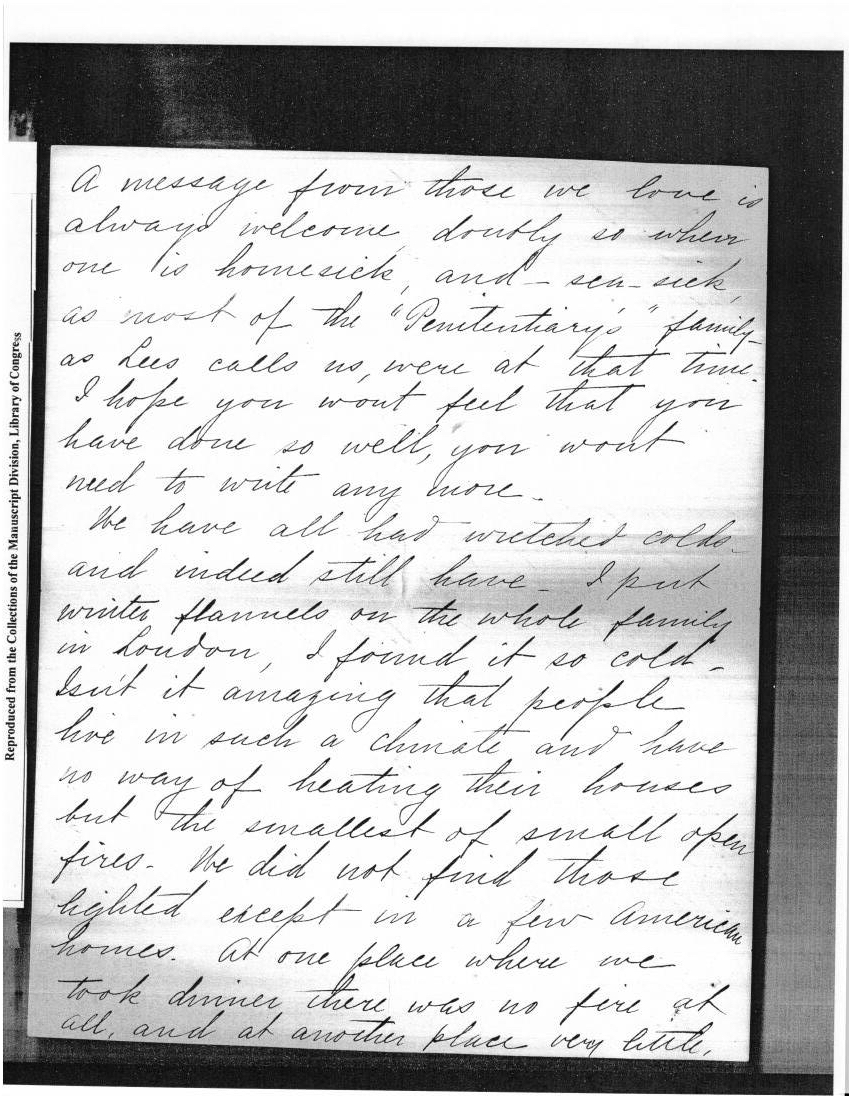 A message from those we love is
always welcome, doubly so when
one is homesick, and - sea-sick,
as most of the "Penitentiary's" family -
as Lees calls us, were at that time.
I hope you wont feel that you
have done so well, you wont
need to write any more.
We have all had wretched colds -
and indeed still have - I put
winter flannels on the whole family
in London, I found it so cold -
Isn't it amazing that people
live in such a climate and have
no way of heating their houses
but the smallest of small open
fires - We did not find those
lighted except in a few American
homes. At one place where we
took dinner there was no fire at
all, and at another place very little,
Reproduced from the Collections of the Manuscript Division, Library of Congress